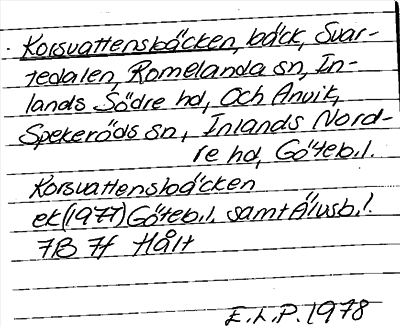 Korsvattensbäcken, bäck, Svar-
tedalen, Romelanda sn, In-
lands Södre hd, Och Anvik,
Spekeröds sn, Inlands Nord-
re hd, Göteb.l.
Korsvattensbäcken
ek (1977) Göteb.l. samt Älvsb.l.
7B 7f Hålt
E.L.P. 1978